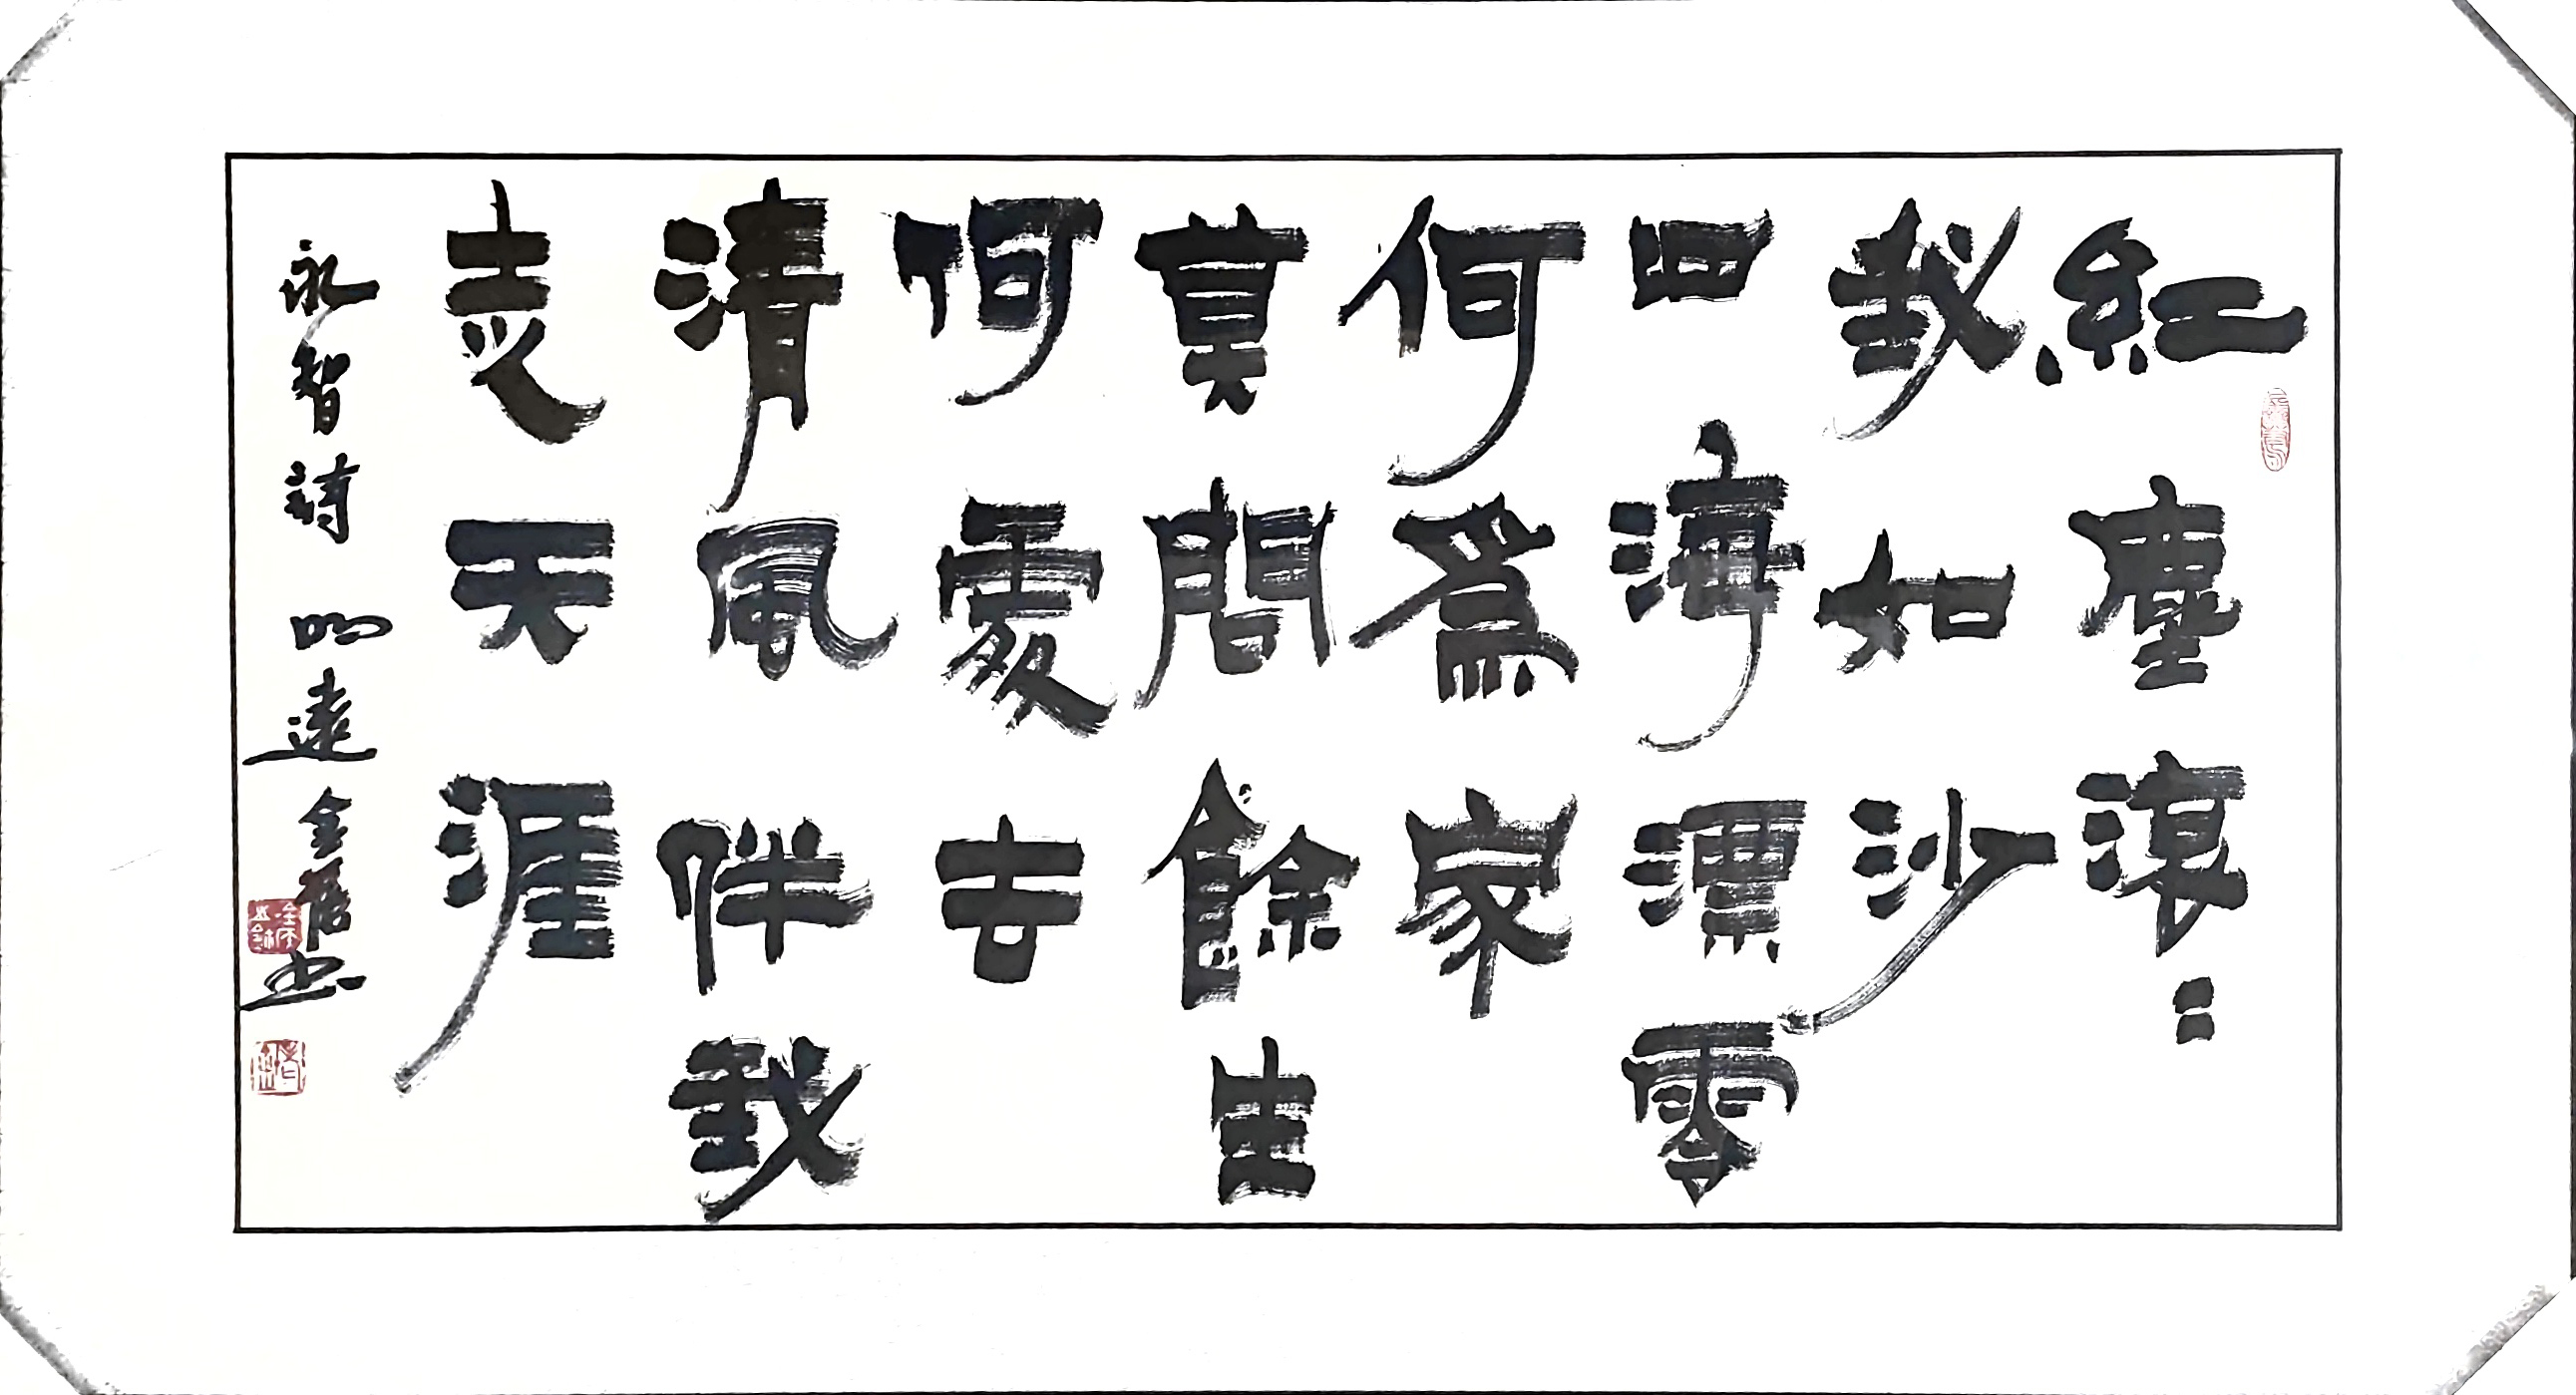 紅塵滾〻
我如沙
四海漂零
何爲家
莫問餘生
何處去
清風伴我
走天涯
永智詩 遠 金 书